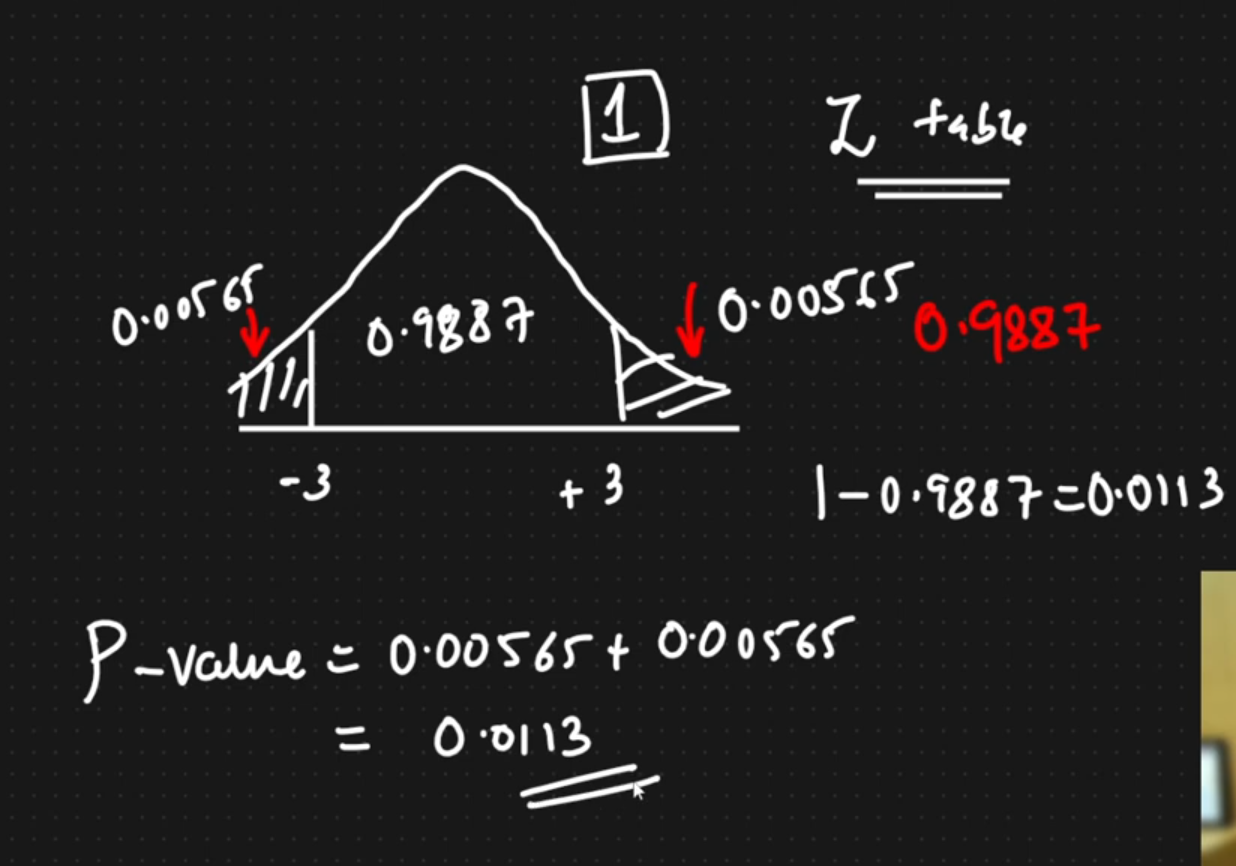 1
Z table
0.00565
0.9887
0.00565
0.9887
-3
+3
1-0.9887=0.0113
P-value = 0.00565+0.00565
= 0.0113